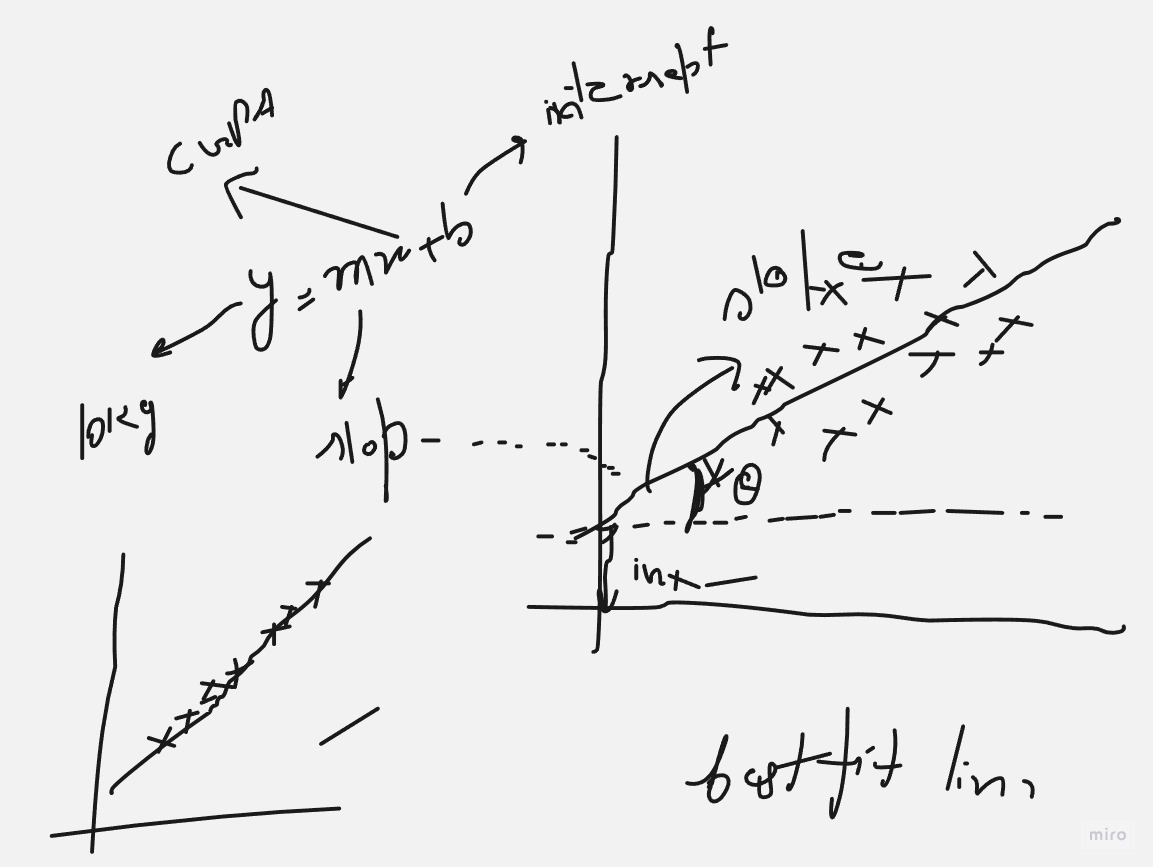 intercept
cgpa
y = mx + b
slope
lpa
slop
θ
int
best fit line
miro